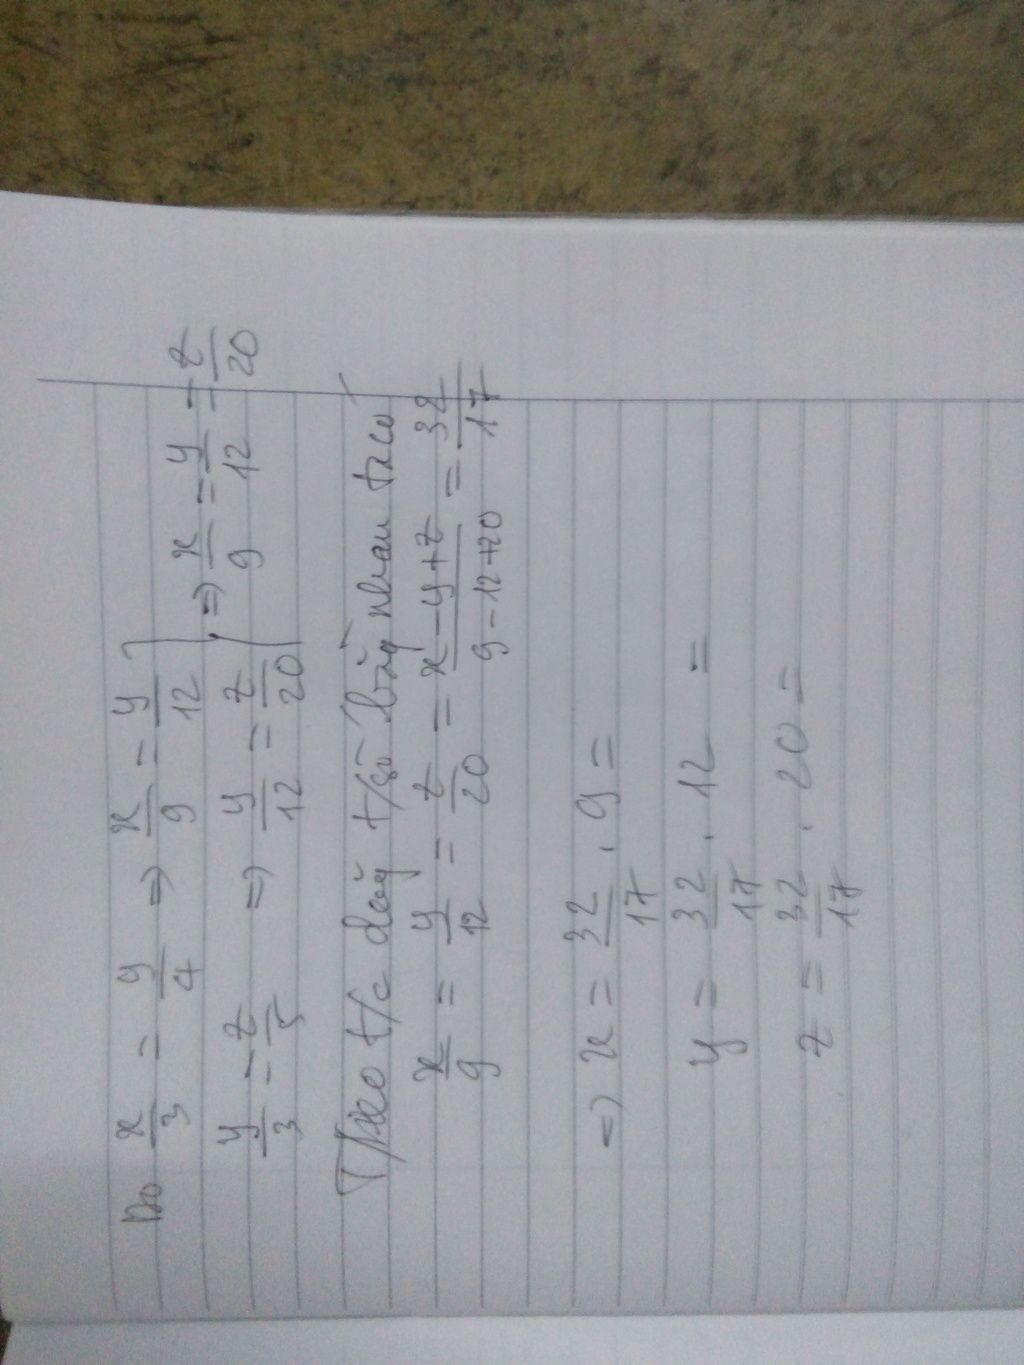 Do x/3 = y/4 => x/9 = y/12
y/3 = z/5 => y/12 = z/20
=> x/9 = y/12 = z/20
Theo t/c dãy t/số bằng nhau ta có
x/9 = y/12 = z/20 = x-y+z/9-12+20 = 32/17
=> x = 32/17 . 9 =
y = 32/17 . 12 =
z = 32/17 . 20 =